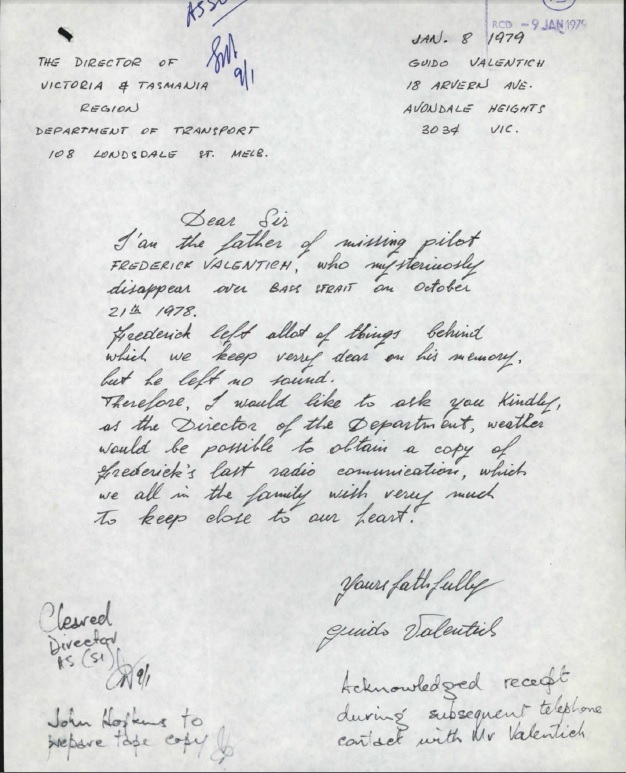 RCD - 9 JAN 1979
JAN. 8 1979
GUIDO VALENTICH
18 ARVERN AVE.
AVONDALE HEIGHTS
3034 VIC.
9/1
THE DIRECTOR OF
VICTORIA & TASMANIA
REGION
DEPARTMENT OF TRANSPORT
108 LONDSDALE ST. MELB.
Dear Sir
I'am the father of missing pilot
FREDERICK VALENTICH, who mysteriously
disappear over BASS STRAIT on October
21th 1978.
Frederick left allot of things behind
which we keep verry dear on his memory,
but he left no sound.
Therefore, I would like to ask you Kindly,
as the Director of the Department, weather
would be possible to obtain a copy of
Frederick's last radio comunication, which
we all in the family wish verry much
to keep close to our heart.
Yours faithfully
Guido Valentich
Cleared
Director
AS (SI)
9/1
John Hopkins to
prepare tape copy
Acknowledged receipt
during subsequent telephone
contact with Mr Valentich